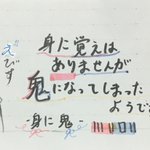 身に覚えは
ありませんが
鬼になってしまった
ようで
-身に鬼-
えびす